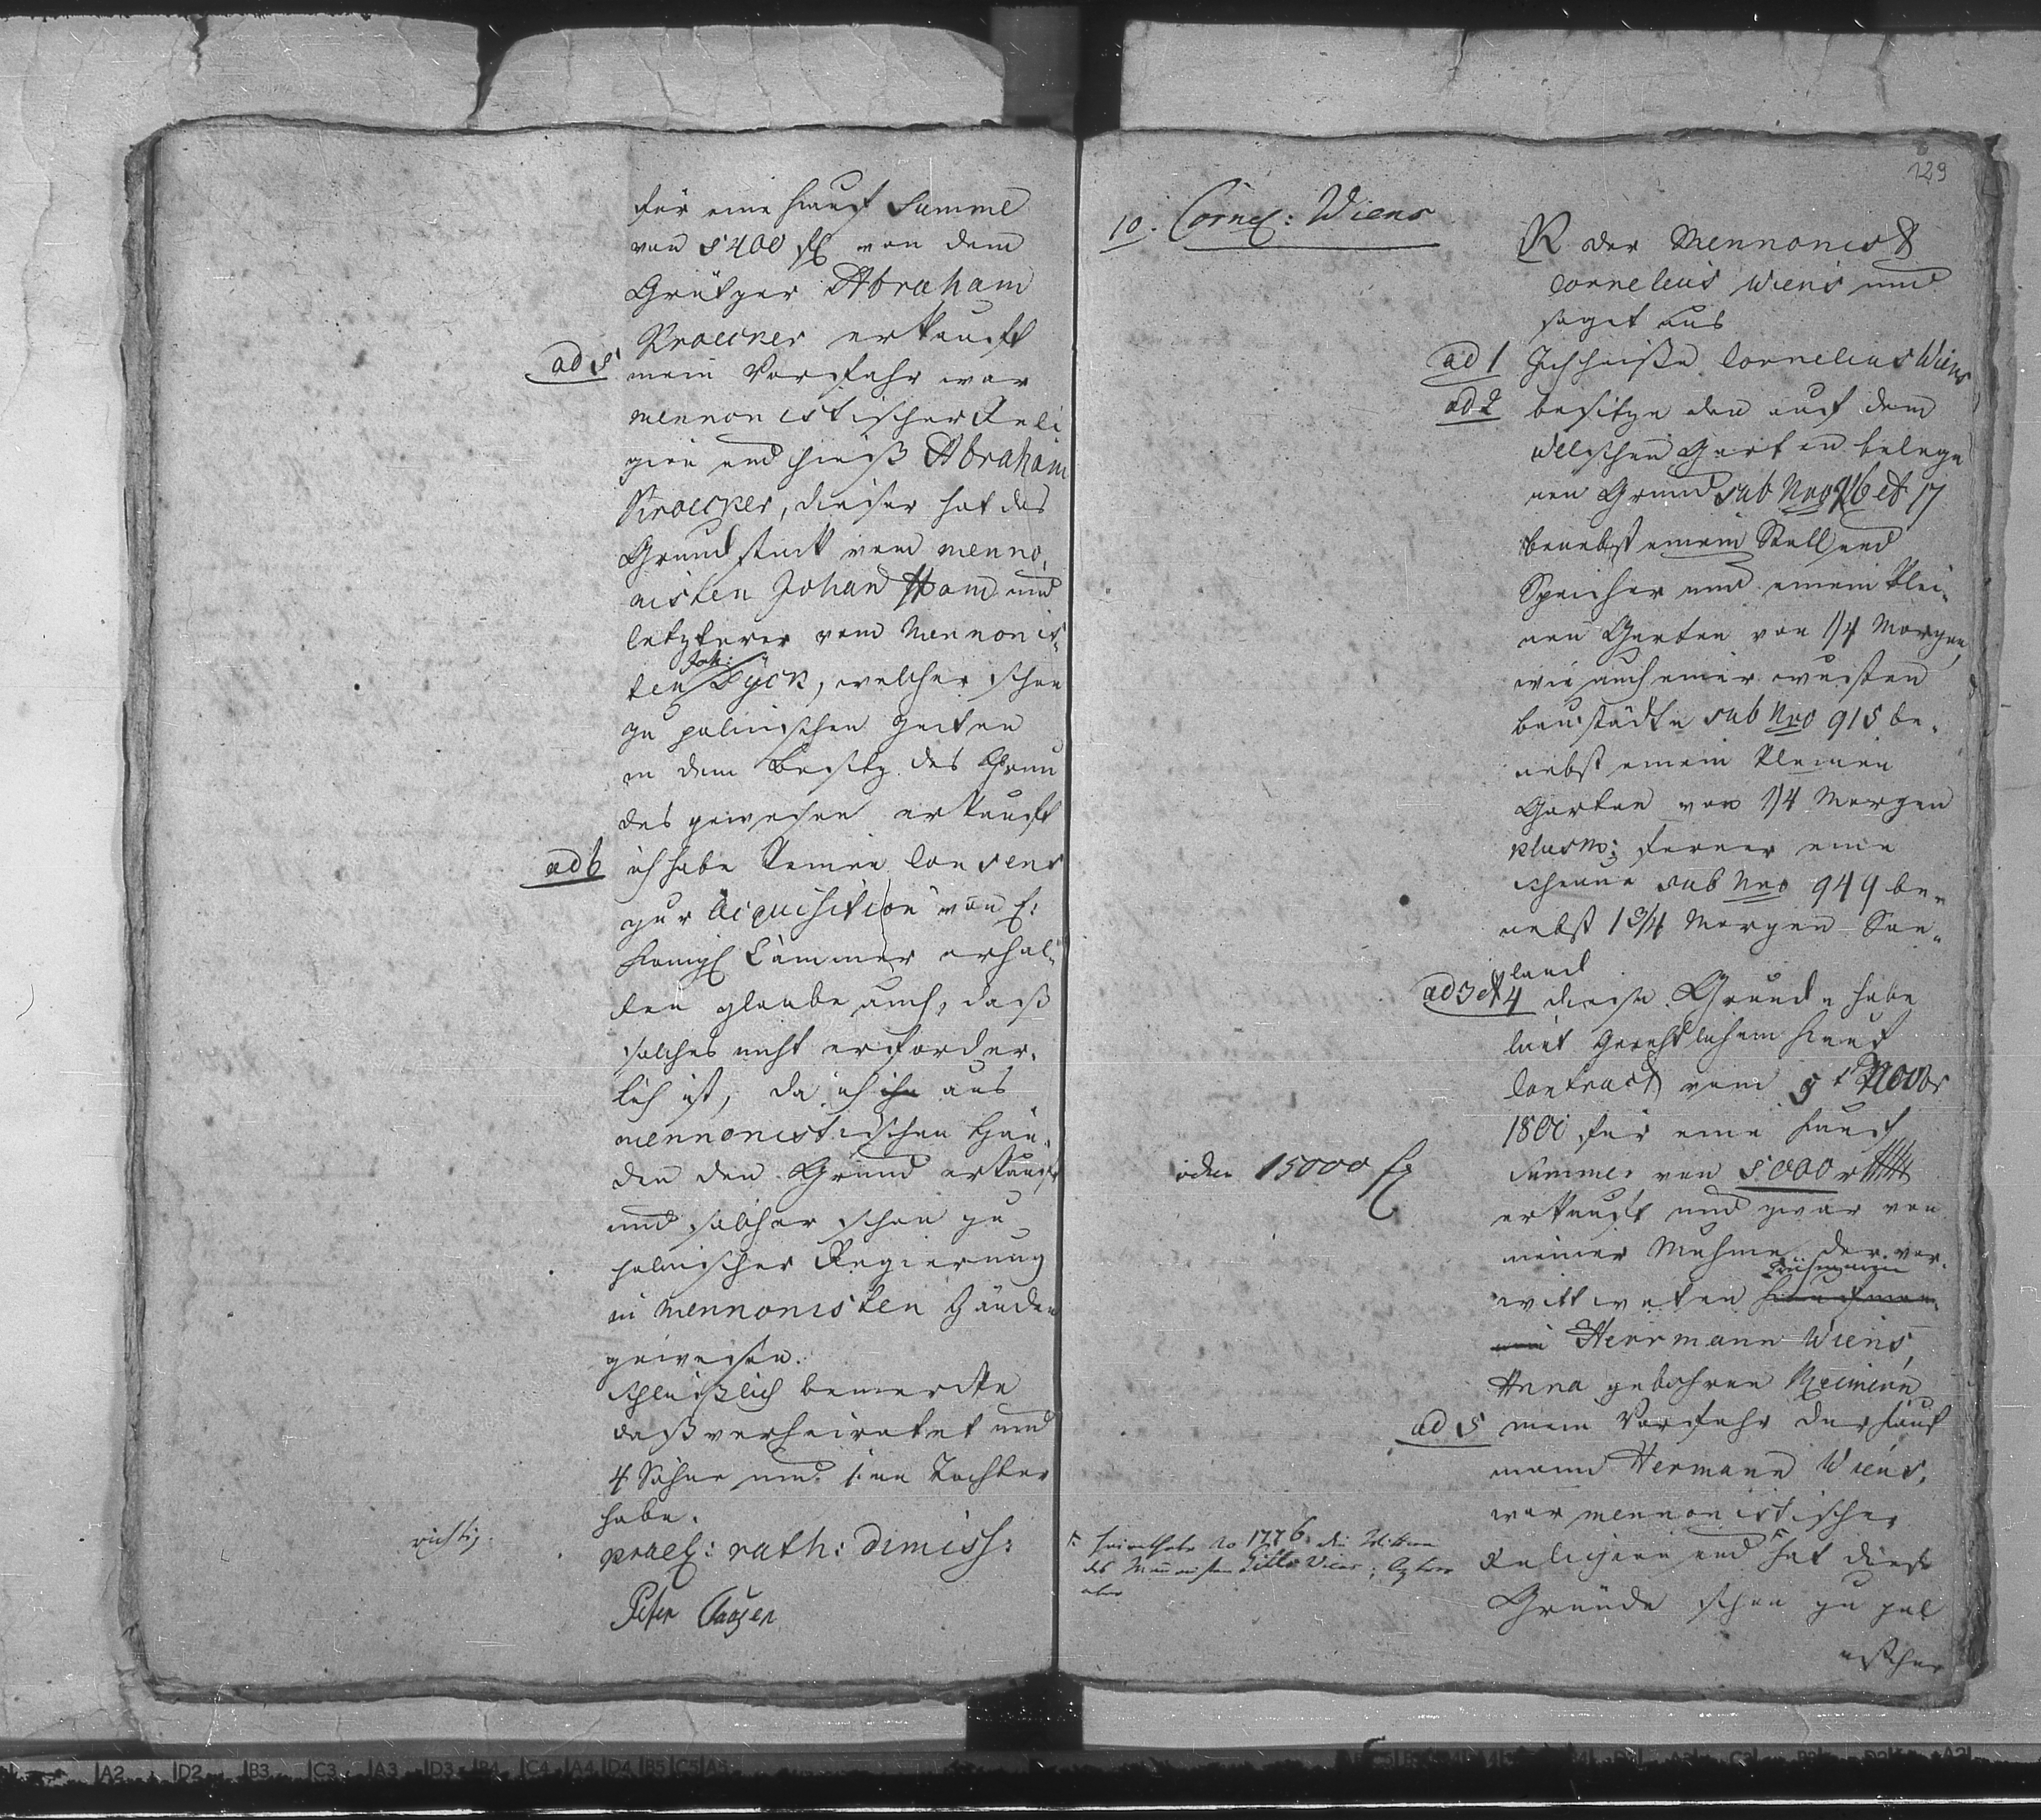 für eine Kauf Summe
von 5400 fl von dem
Grützer Abraham
Kroecker erkauft
ad 5 mein Vorfahr war
mennonistischer Reli
gion und hieß Abraham
Kroecker, dieser hat das
Grundstück vom menno
nisten Johan Ham und
letzterer vom Mennonis-
ten Joh: Dÿck, welcher schon
zu polnischen Zeiten
in dem Besitz des Grun
des gewesen erkauft
ad 6 ich habe keinen Consens
zur Acquisition von E:
Königl Cammer erhal-
ten glaube auch, daß
solches nicht erforder-
lich ist, da ich ihn aus
mennonistischen Hän-
den den Grund erkauft
und solcher schon zu
polnischer Regierung
in Mennonisten Händen
gewesen.
Schließlich bemerke
daß verheiratet und
4 Söhne und eine Tochter
habe.
richtig.
prael: rath: dimiss:
Peter Claaßen
129
10. Cornel: Wiens
R der Mennonist
Cornelius Wiens und
saget aus
ad 1 Ich heiße Cornelius Wiens
ad 2 besitze den auf dem
welschen Garten belege
nen Grund sub Nro 16 et 17
benebst einem Stall und
Speicher und einem klei-
nen Garten von 1/4 Morgen
wie auch einer wüsten
Baustädte sub Nro 915 be-
nebst einem kleinen
Garten von 1/4 Morgen
plus m: ferner eine
Scheune sub Nro 949 be-
nebst 1 3/4 Morgen Säe-
land
ad 3 et 4 diese Gründe habe
laut gerichtlichem Kauf
Contract vom 5t Novbr
1800 für eine Kauf
Summe von 5000 rthl
oder 15000 fl
erkauft und zwar von
meiner Muhme der ver-
wittweten Kaufman-
nin Herrmann Wiens,
Anna gebohrne Reimern
ad 5 mein Vorfahr der Kauf
mann Hermann Wiens,
war mennonistischer
Religion und hat diese
Gründe schon zu pol
nischer
1776 die Wittwe
des Mennonisten
aber